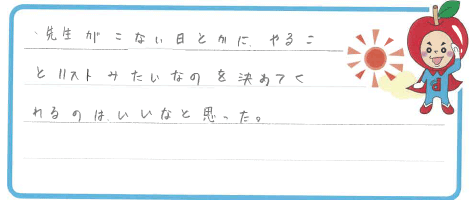 ・先生がこない日とかに、やるこ
とリストみたいなのを決めてく
れるのは、いいなと思った。
d